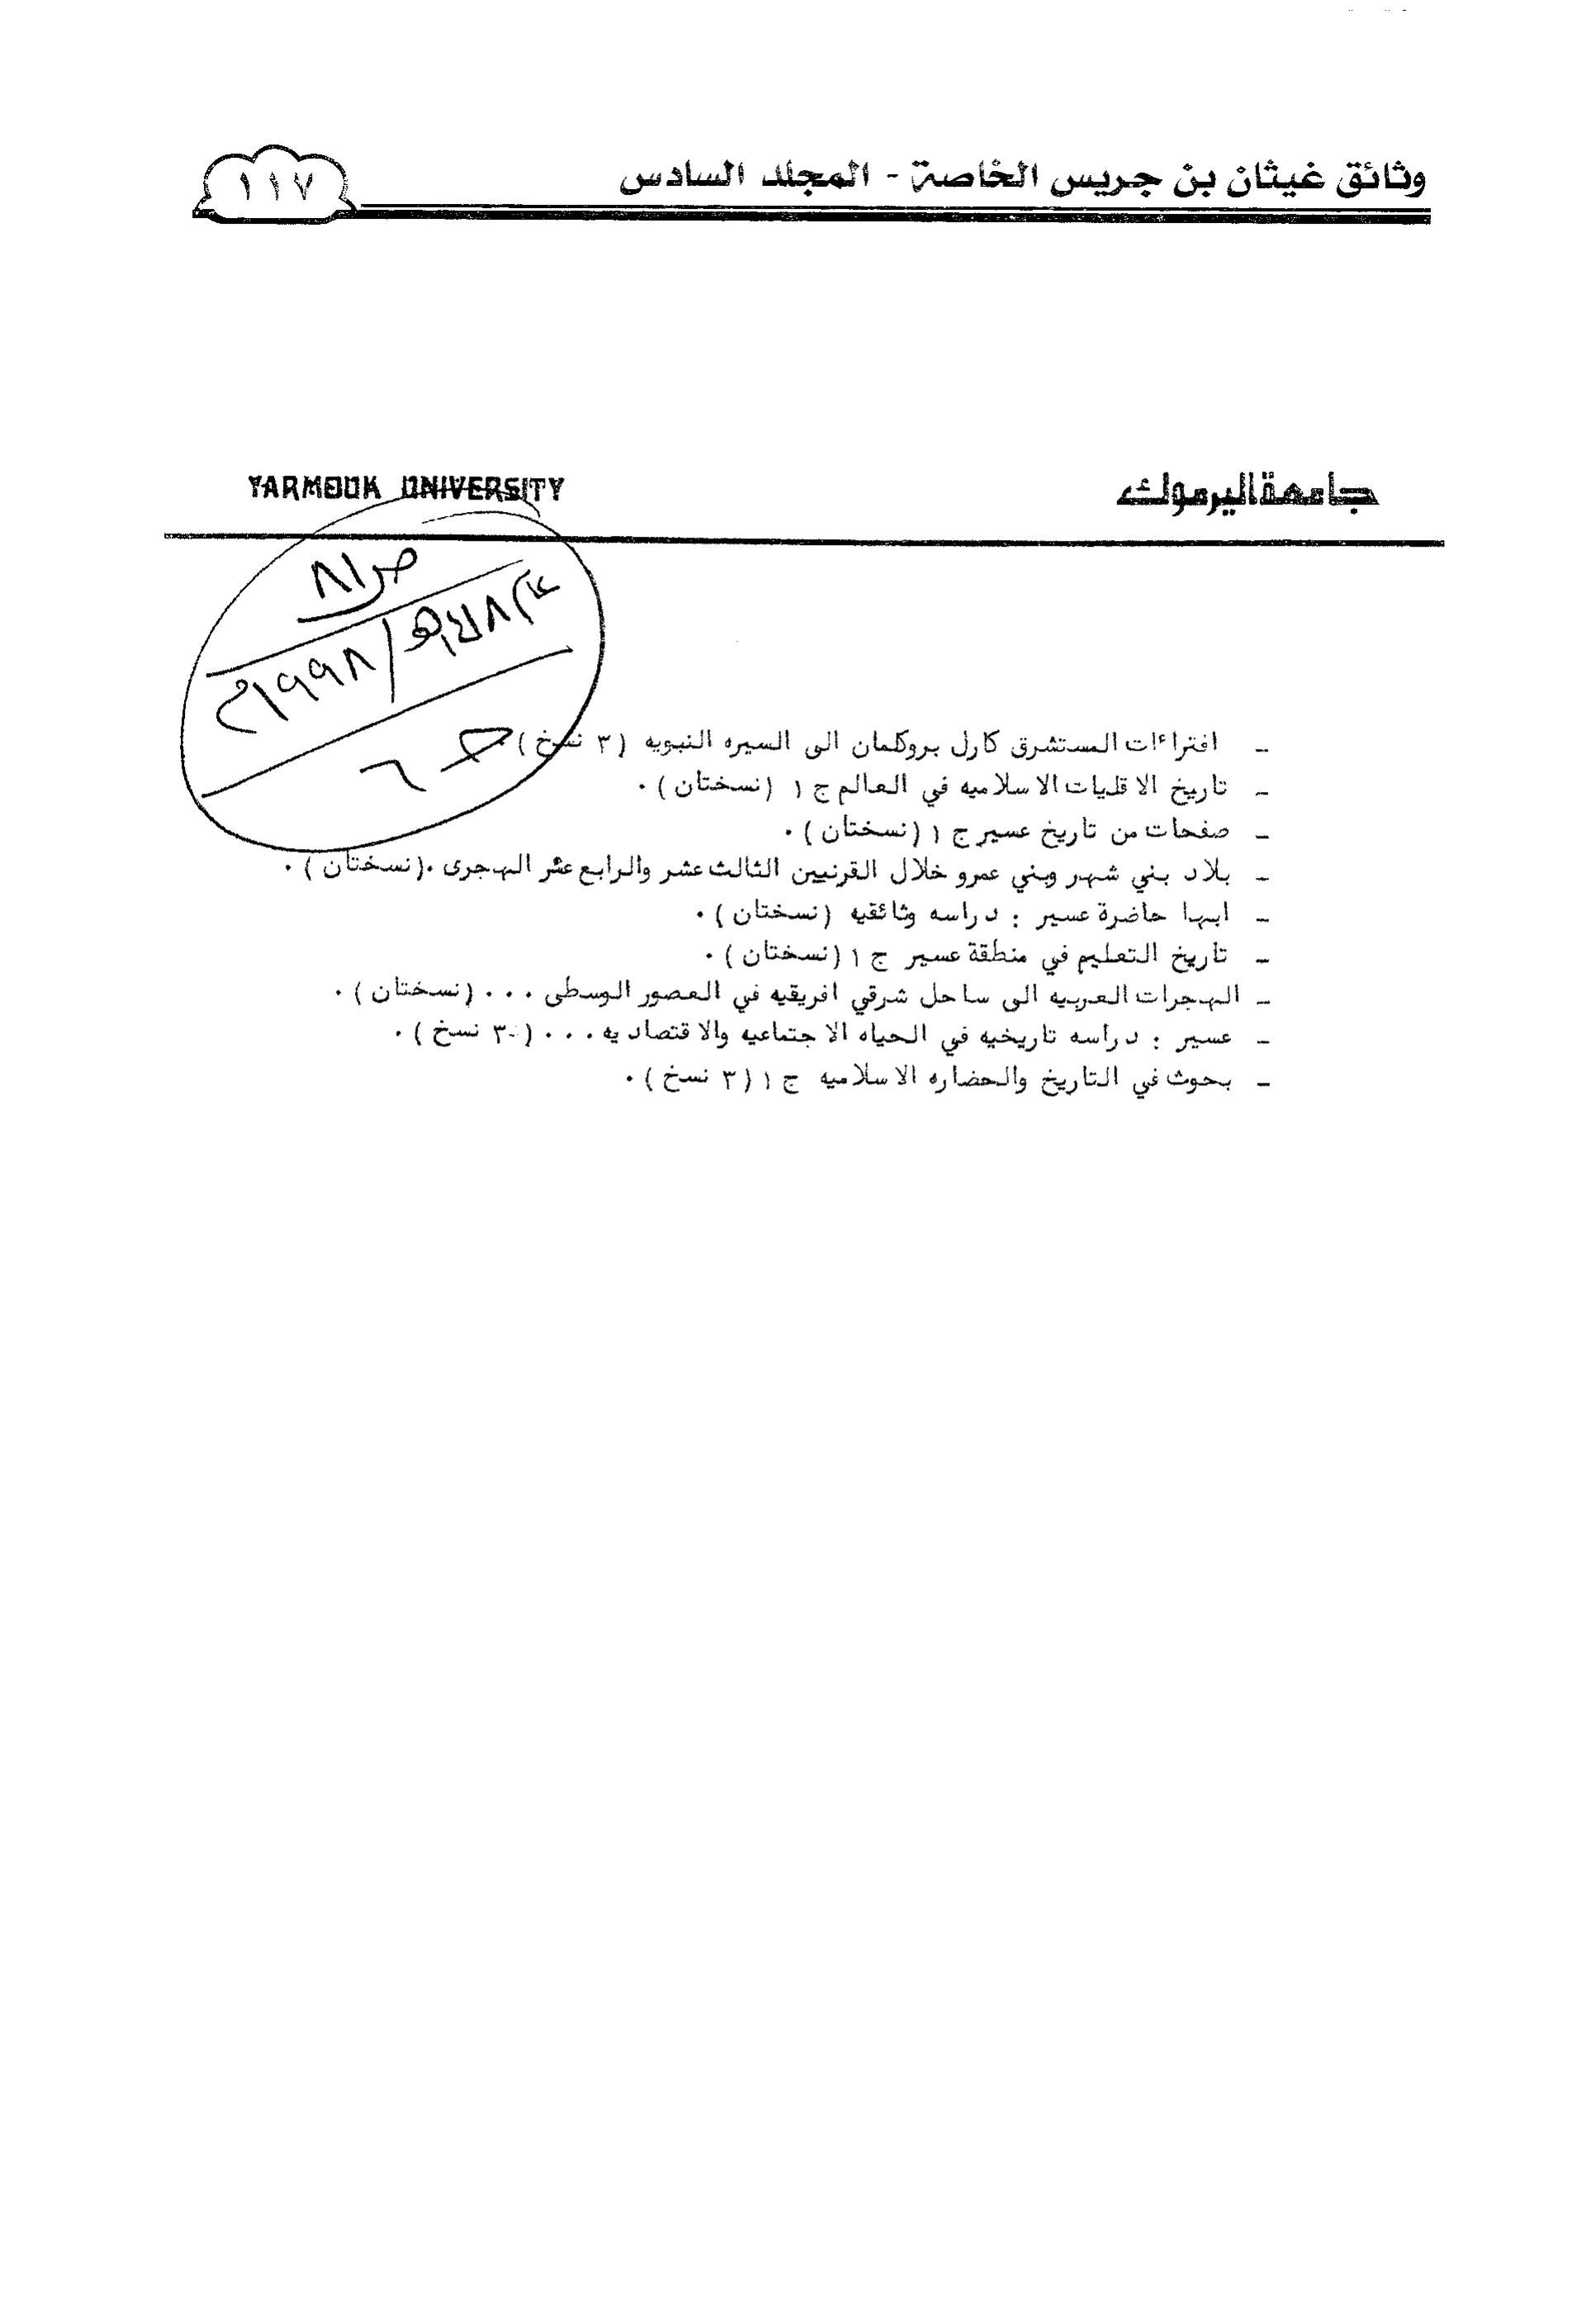 وثائق غيثان بن جريس الخاصة - المجلد السادس
١١٧
جامعة اليرموك
YARMOUK UNIVERSITY
ص٨١
١٩٩٨م
ج ٦
ـ افتراءات المستشرق كارل بروكلمان الى السيره النبويه (٣ نسخ)
ـ تاريخ الاقليات الاسلاميه في العالم ج ١ (نسختان).
ـ صفحات من تاريخ عسير ج ١ (نسختان).
ـ بلاد بني شهر وبني عمرو خلال القرنيين الثالث عشر والرابع عشر الهجرى.(نسختان).
ـ ابها حاضرة عسير : دراسه وثائقيه (نسختان).
ـ تاريخ التعليم في منطقة عسير ج ١ (نسختان).
ـ الهجرات العربيه الى ساحل شرقي افريقيه في العصور الوسطى ... (نسختان).
ـ عسير : دراسه تاريخيه في الحياه الاجتماعيه والاقتصاديه ... (٣ نسخ).
ـ بحوث في التاريخ والحضاره الاسلاميه ج ١ (٣ نسخ).